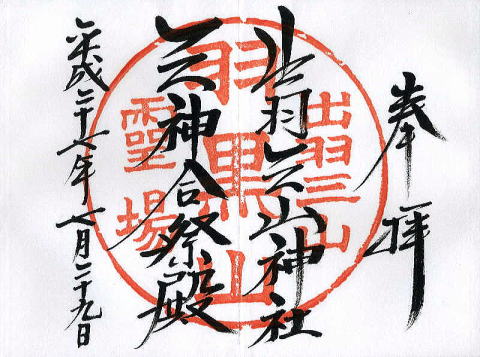 奉拝
出羽三山神社
三神合祭殿
平成二十七年七月二十九日
出羽三山
羽黒山
靈場